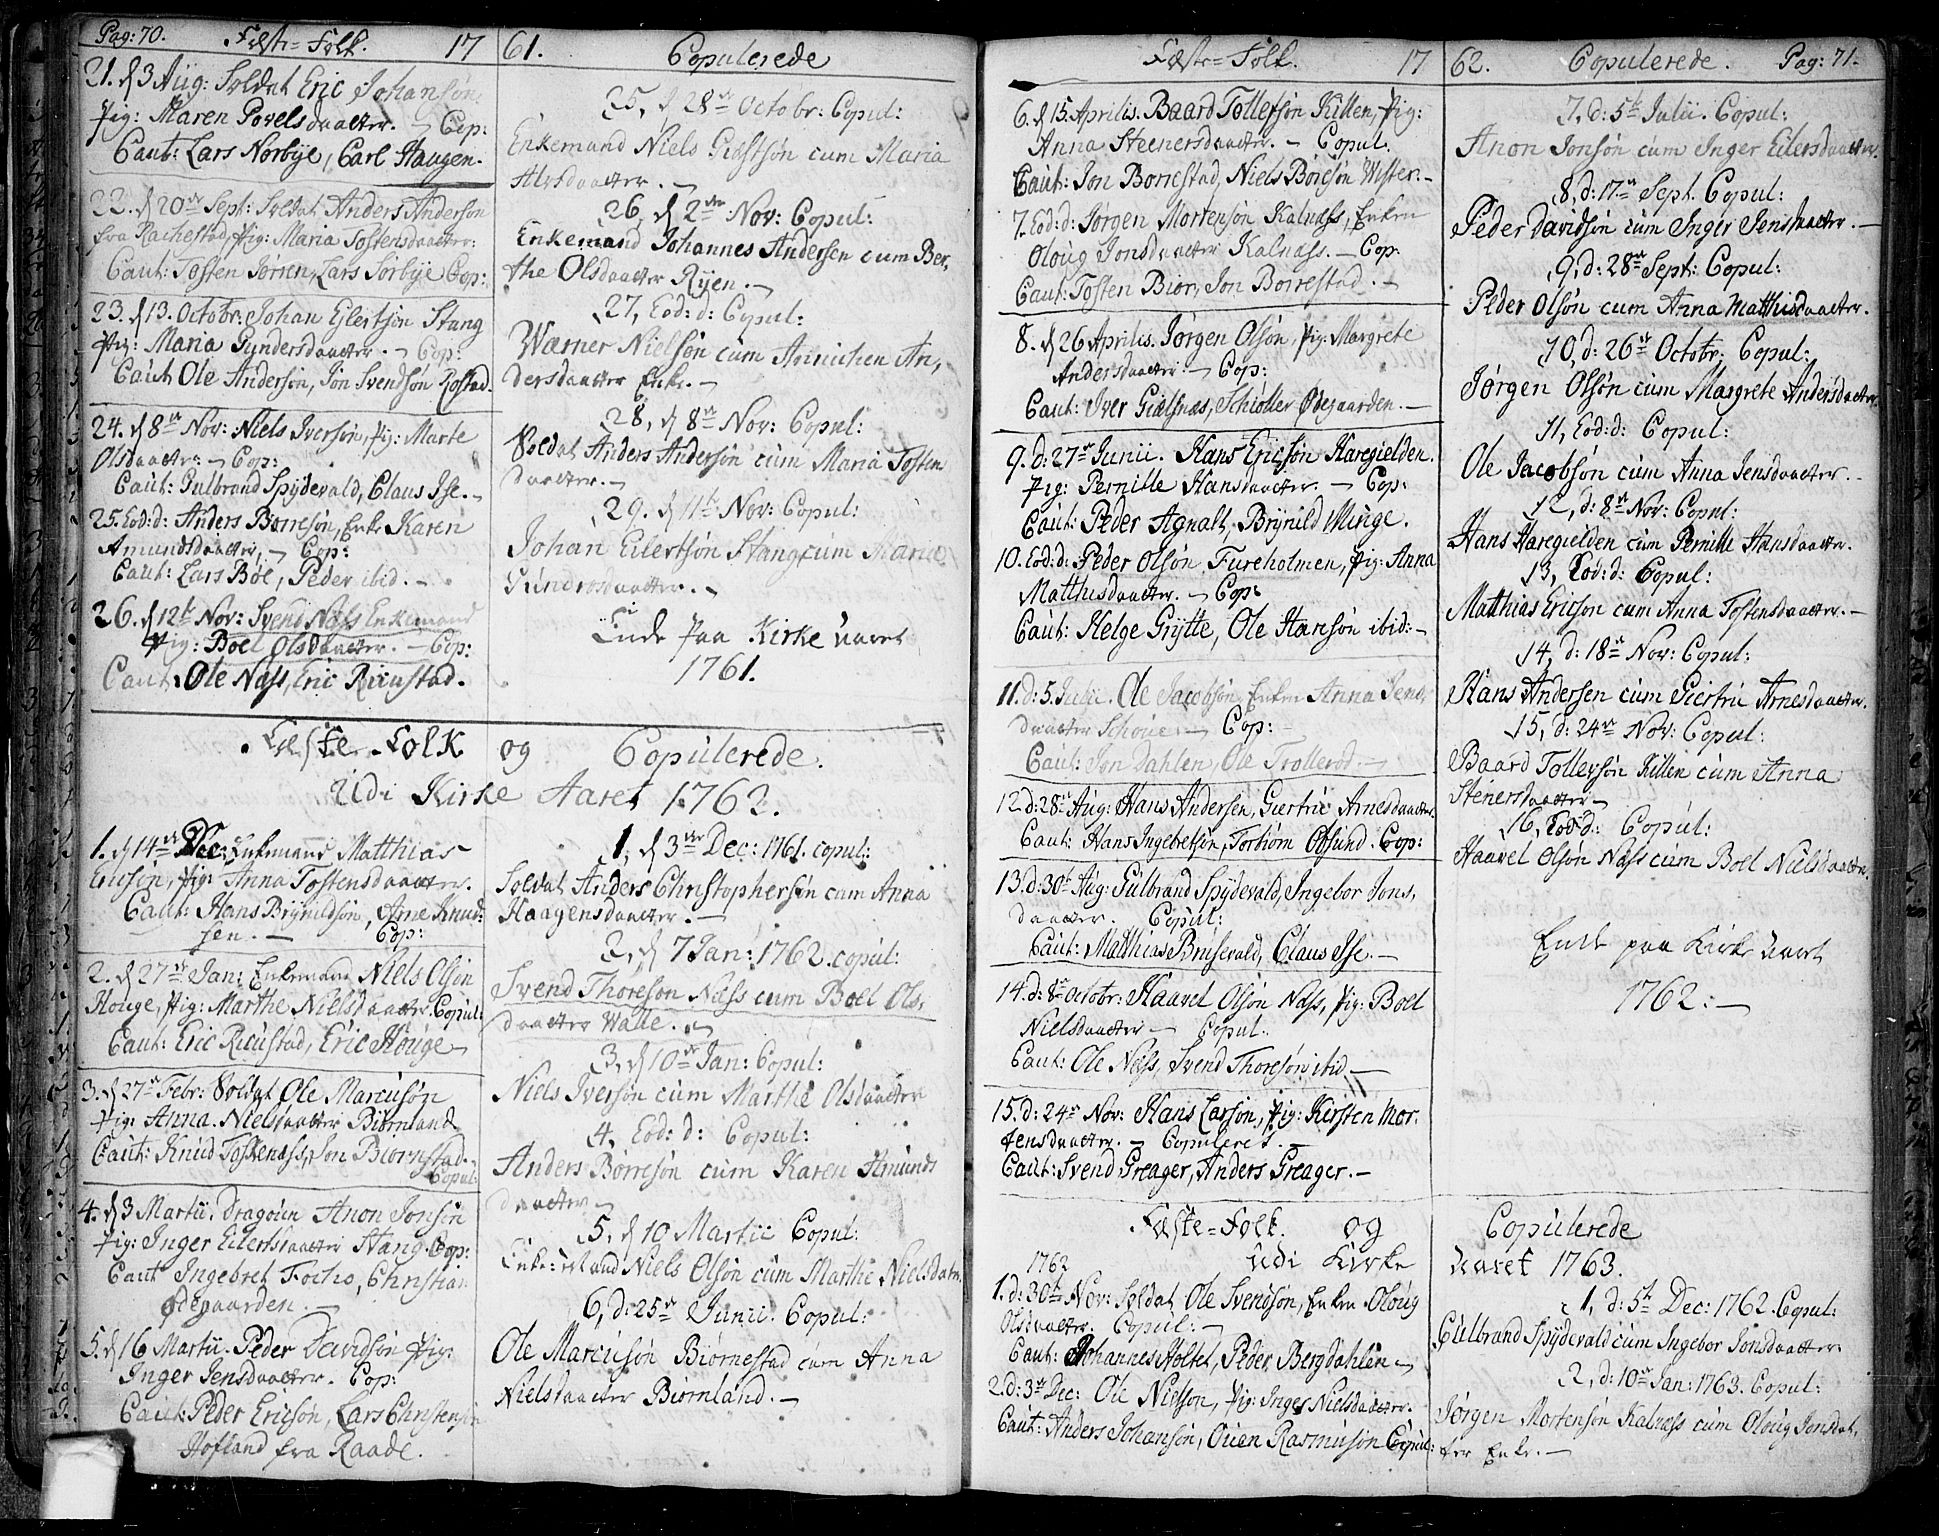 Pag: 70. Fæste=Folk. 17
21. d 3 Aug: Soldat Eric Johansøn
Pig: Maren Povelsdaatter. – Cop:
Caut: Lars Norbye, Carl Haugen.
22. d 20de Sept: Soldat Anders Anderson
fra Rachestad, Pig: Maria Tostensdaatter:
Caut: Tosten Jørren, Lars Sørbye Cop:
23. d 13. Octobr: Johan Ejlertsøn Stang
Pig: Maria Gundersdaatter. – Cop:
Caut Ole Andersøn, Jon Svendsøn Rostad.
24. d 8de Nov: Niels Iversøn, Pig: Marte
Olsdaatter – Cop:
Caut: Gulbrand Spydevald, Claus Ise. –
25. Eod: d: Anders Børresøn, Enke Karen
Amundsdaatter, – Cop:
Caut: Lars Böe, Peder ibid. –
26. d 12te Nov: Svend Næss Enkemand
Pig: Boel Olsdaatter. – Cop:
Caut. Ole Næss, Eric Riiustad.
61. Copulerede
25, d 28de Octobr: Copul:
Enkemand Niels Giæstsøn cum Maria
Alvsdaatter. –
26, d 2den Nov: Copul:
Enkemand Johannes Andersen cum Ber,
the Olsdaatter Ryen. –
27, Eod: d: Copul:
Wærner Nielsøn cum Annichen An,
dersdaatter Enke. –
28, d 8de Nov: Copul:
Soldat Anders Andersøn cum Maria Tosten
daatter. –
29. d 11te Nov: Copul:
Johan Eilertsøn Stang cum Maria
Gundersdaatter. –
Ende paa Kirke aaret
1761.
Fæste-Folk og Copulerede
Udi Kirke Aaret 1762.
1. d 14de Dec: Enkemand Matthias
Ericsen, Pig: Anna Tostensdaatter.
Caut: Hans Brynildsøn, Arne Knud:
sen. – Cop:
2. d 27de Jan: Enkemand Niels Olsøn
Houge, Pig: Marthe Nielsdaatter. Copul:
Caut: Eric Riiustad, Eric Houge –
3. d 27de Febr: Soldat Ole Marcusøn
Pig: Anna Nielsdaatter Biørnland
Caut: Knud Tostenæss, Jon Biørnstad.
Copul:
4. d 3 Martii. Dragoun Anon Jonsøn
Pig: Inger Eilertsdaatter Stang. Cop:
Caut Ingebret Focho, Christian
Ødegaarden. –
5. d 16 Martii. Peder Davidsøn Pig:
Inger Jensdaatter. Cop:
Caut: Peder Ericsøn, Lars Christensøn
Hofland fra Raade.
1, d 3die Dec: 1761. copul:
Soldat Anders Christophersøn cum Anna
Haagensdaatter. –
2, d 7 Jan: 1762. copul:
Svend Thoreson Næss cum Boel Ols,
daatter Walle. –
3, d 10de Jan: Copul:
Niels Iversøn cum Marthe Olsdaatter
4, Eod: d: Copul:
Anders Børresøn cum Karen Amunds
daatter –
5, d 10 Martii Copul:
Enke: Niels Olsøn cum Marthe Nielsdatr.
6, d: 25de Junii. Copul:
Ole Marcusøn Biørnestad cum Anna
Nielsdaatter Biørnland. –
Fæste=Folk. 17
6. d 15 Aprilis. Baard Tollefsøn Killen, Pig:
Anna Steenersdaatter. – Copul.
Caut: Jon Borrestad, Niels Børesøn Wister. –
7. Eod: d: Jørgen Mortensøn Kalnæss, Enken
Oloug Jonsdaatter Kalnæss. – Cop:
Caut: Tosten Biør, Jon Borrestad. –
8. d 26 Aprilis. Jørgen Olsøn, Pig: Margrete
Andersdaatter – Cop:
Caut: Iver Gielsnæs, Schiøller Ødegaarden. –
9. d: 27de Junii. Hans Ericsøn Haregielden.
Pig: Pernille Hansdaatter. – Cop:
Caut: Peder Agnalt, Brynild Minge.
10. Eod: d: Peder Olsøn Fureholmen, Pig: Anna
Matthisdaatter. – Cop:
Caut: Helge Grytte, Ole Hansøn ibid: –
11. d: 5. Julii. Ole Jacobsøn, Enken Anna Jens,
daatter Schoue. – Cop: –
Caut: Jon Dahlen, Ole Trollerød. –
12. d: 28de Aug: Hans Andersen, Giertrie Arnesdaatter.
Caut: Hans Ingebretsøn, Torbiørn Opsund. Cop:
13. d: 30te Aug: Gulbrand Spydevald, Ingebor Jons,
daatter. Copul:
Caut: Matthias Brusevald, Claus Ise. –
14. d: 8de Octobr: Haavel Olsøn Næss, Pig: Boel
Nielsdaatter – Copul.
Caut: Ole Næss, Svend Thoresøn ibid –
15. d: 24de Nov: Hans Larsøn, Pig: Kirsten Mor,
tensdaatter. – Copuleret. –
Caut: Svend Greager, Anders Greager. –
62. Copulerede. Pag: 71.
7, d: 5te Julii. Copul:
Anon Jonsøn cum Inger Eilersdaatter.
8, d: 17de Sept. Copul:
Peder Davidsøn cum Inger Jensdaatter. –
9, d: 28de Sept: Copul:
Peder Olsøn cum Anna Matthisdaatter.
10, d: 26de Octobr. Copul:
Jørgen Olsøn cum Margrete Andersdaatter.
11, Eod: d: Copul:
Ole Jacobsøn cum Anna Jensdaatter. –
12, d: 8de Nov: Copul:
Hans Haregielden cum Pernille Hansdaatter.
13, Eod: d: Copul:
Matthias Ericson cum Anna Tostensdaatter. –
14, d: 18de Nov: Copul:
Hans Andersen cum Giertrie Arnesdaatter.
15, d: 24de Nov: Copul:
Baard Tollersøn Killen cum Anna
Stenersdaatter –
16, Eod: d: Copul:
Haavel Olsøn Næss cum Boel Nielsdaatter.
Ende paa Kirke aaret
1762: –
Fæste=Folk. og Copulerede
udi Kirke aaret 1763.
1762
1. d: 30te Nov: Soldat Ole Svendsøn, Enken Oloug
Olsdaatter. Copul: –
Caut: Johannes Holtet, Peder Bergdahlen –
2. d: 3de Dec: Ole Nielson, Pig: Inger Nielsdaatter.
Caut: Anders Johansøn, Ouen Rasmusøn Copul:
1, d: 5te Dec: 1762. Copul:
Gulbrand Spydevald cum Ingebor Jonsdaatter
2, d: 10de Jan: 1763. Copul:
Jørgen Mortensøn Kalnæss cum Oloug Jonsdat,
ter Enke. –